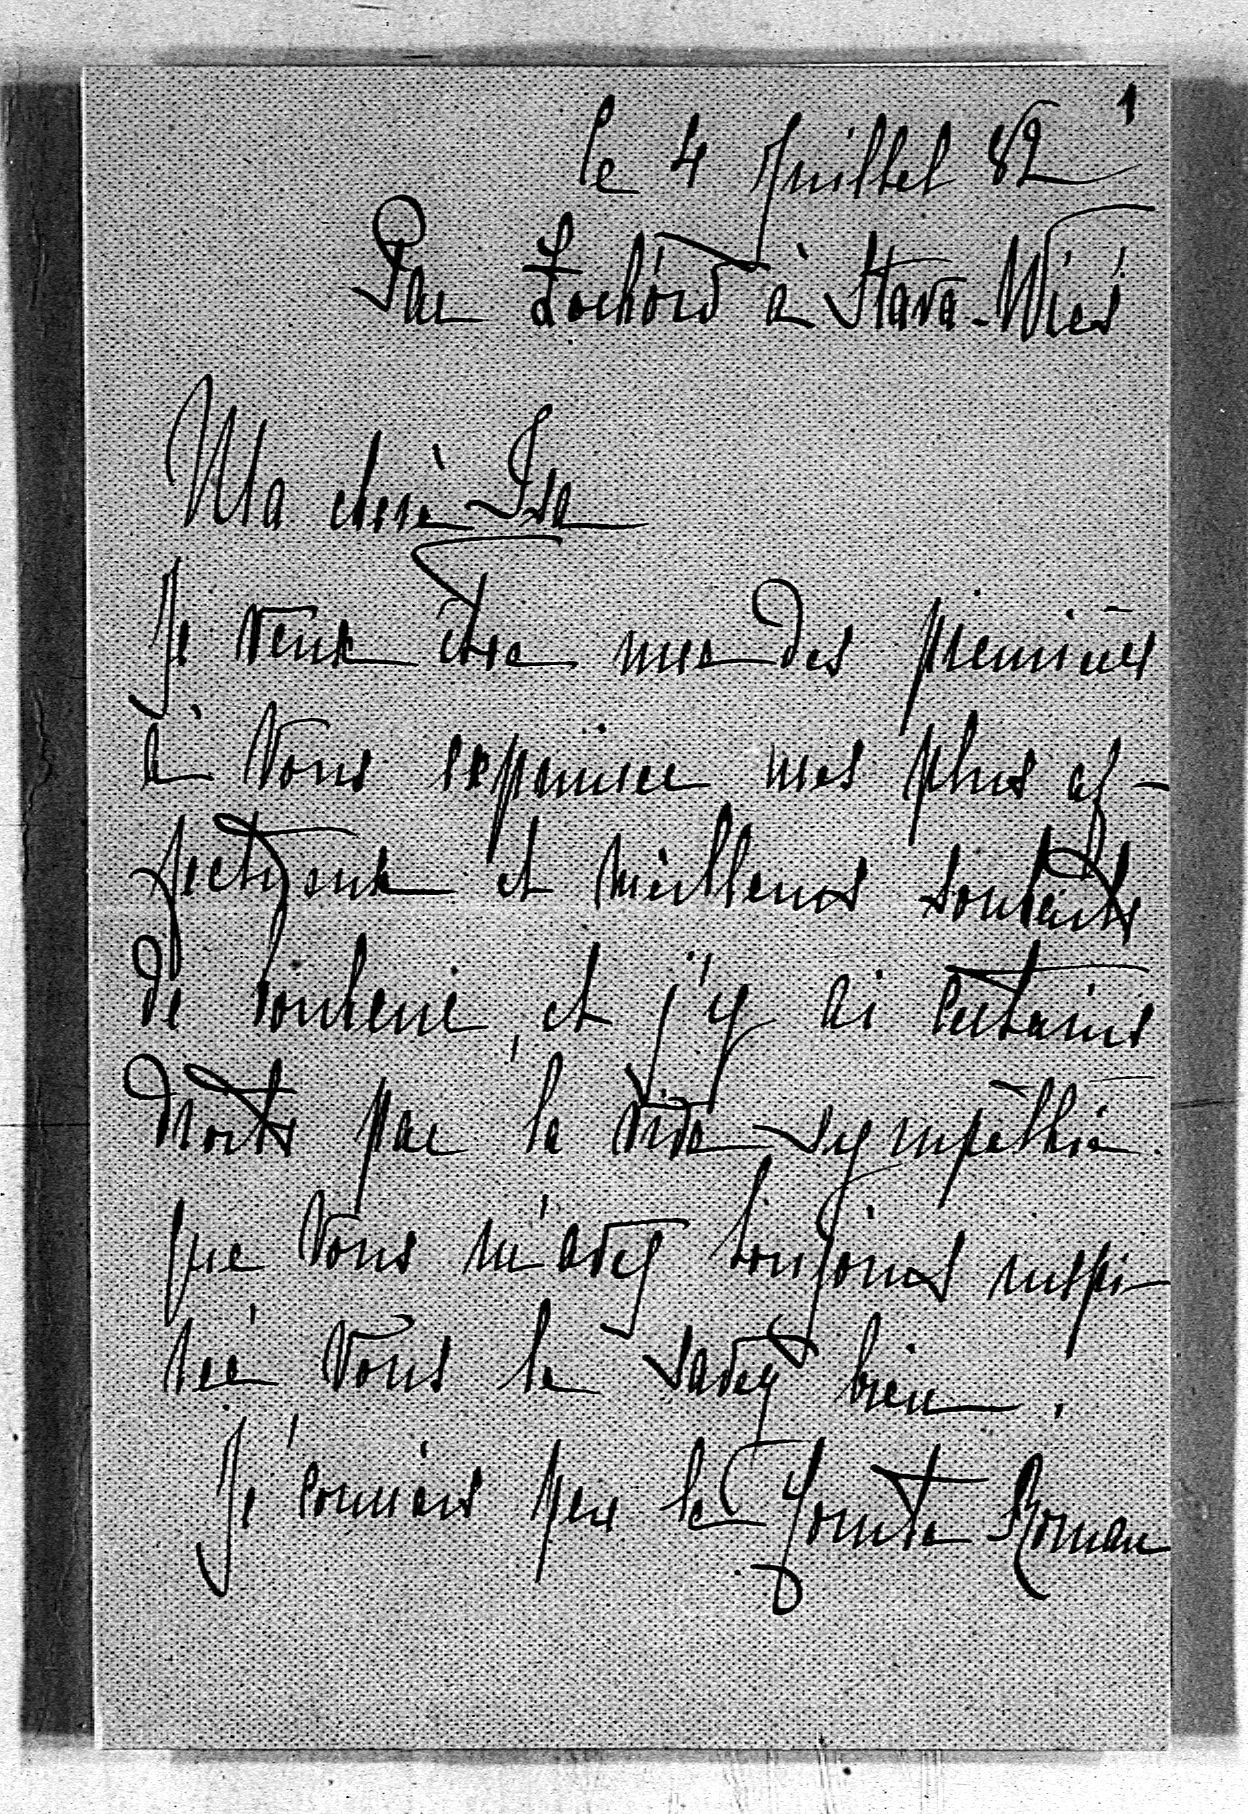 1
le 4 Juillet 82
Par Łochów à Stara-Wieś
Ma chère Isa
Je veux être une des premières
à Vous exprimer mes plus af-
fectueux et meilleurs souhaits
de bonheur, et j'y ai certains
droits par la vive sympathie
que Vous m'avez toujours inspi-
rée Vous le savez bien.
Je connais peu le Comte Roman